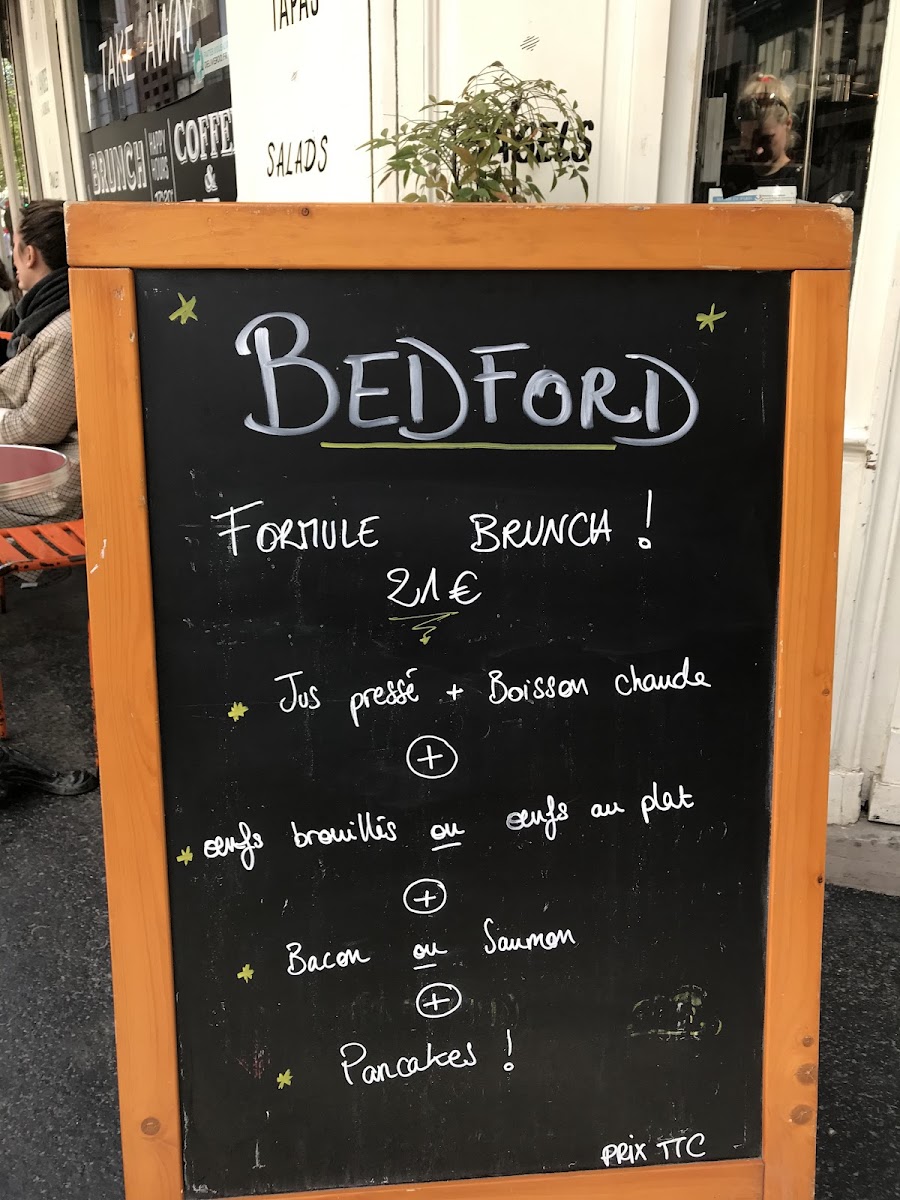 TAPAS
TAKE AWAY
BRUNCH
HAPPY
HOURS
COFFE
&
SALADS
BEDFORD
FORMULE BRUNCH !
21€
Jus pressé + Boisson chaude
+
œufs brouillés ou œufs au plat
+
Bacon ou Saumon
+
Pancakes !
PRIX TTC